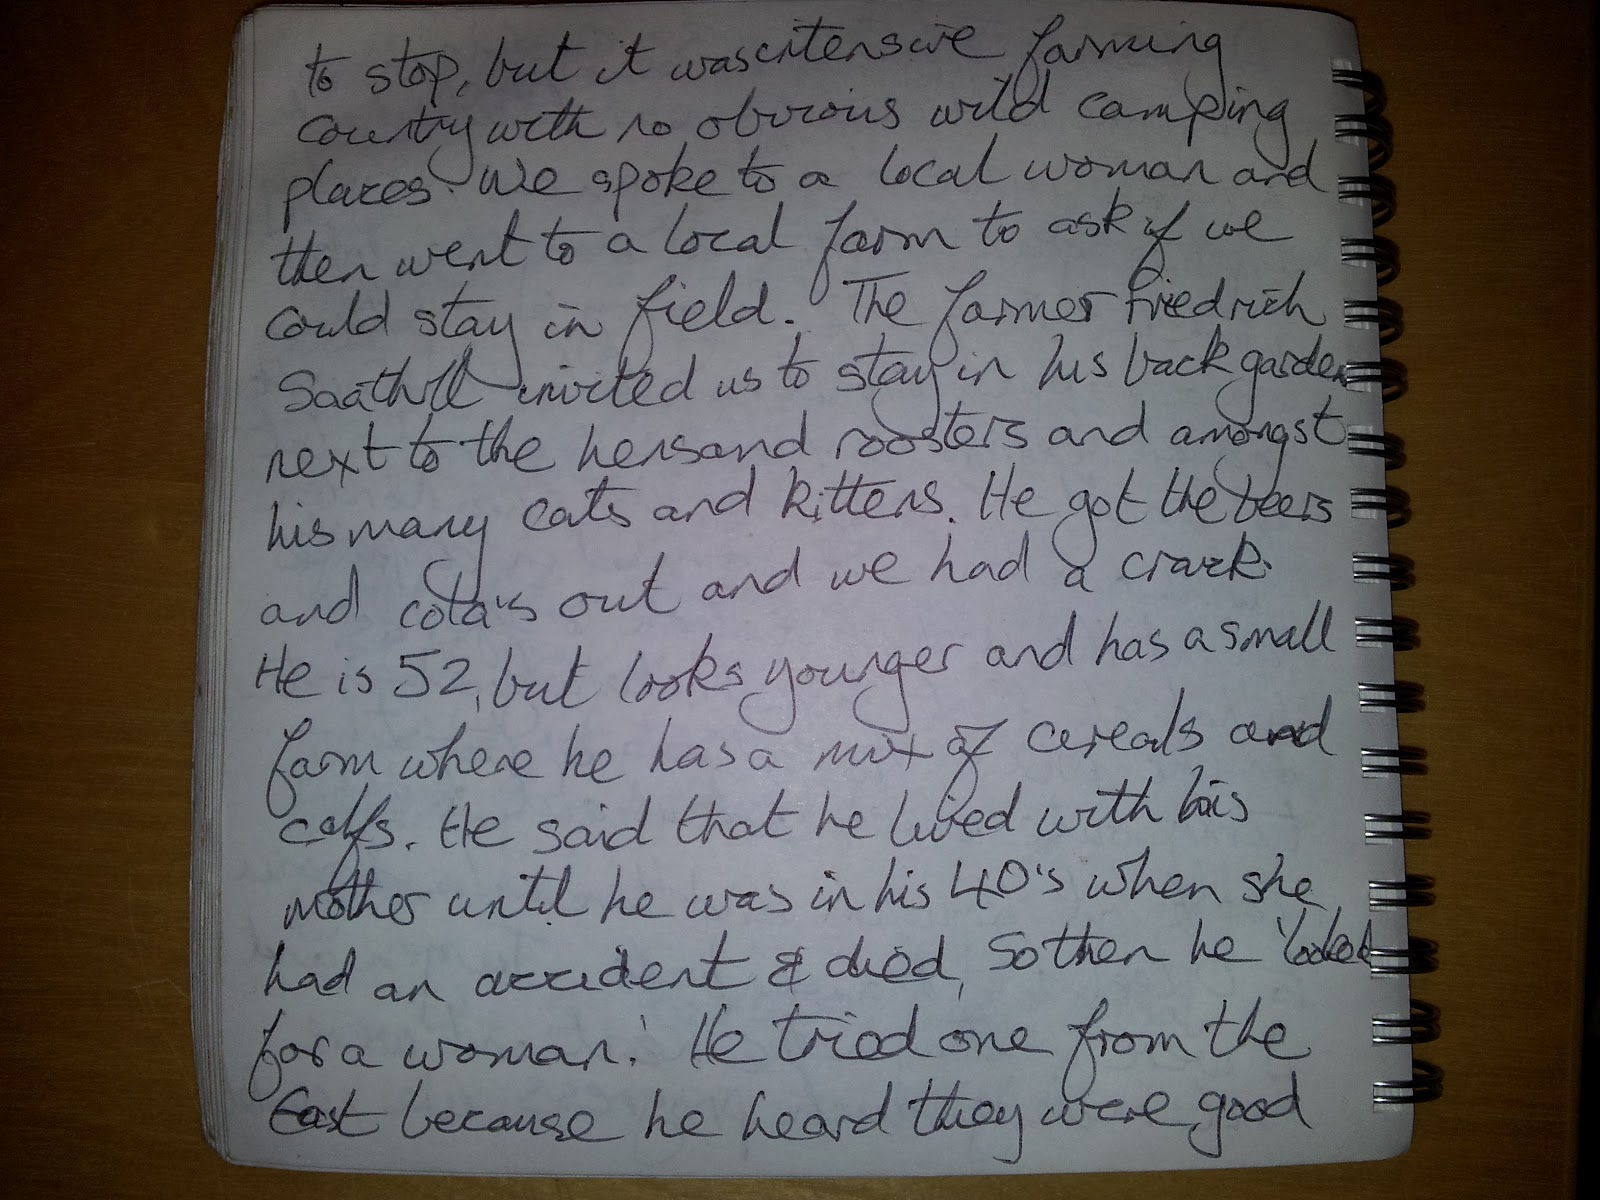 to stop, but it was intensive farming
country with no obvious wild camping
places. We spoke to a local woman and
then went to a local farm to ask if we
could stay in field. The farmer Friedrich
invited us to stay in his back garden
next to the hens and roosters and amongst
his many cats and kittens. He got the beers
and cola's out and we had a crack.
He is 52, but looks younger and has a small
farm where he has a mix of cereals and
calfs. He said that he lived with his
mother until he was in his 40's when she
had an accident & died, So then he 'looked
for a woman.' He tried one from the
East because he heard they were good